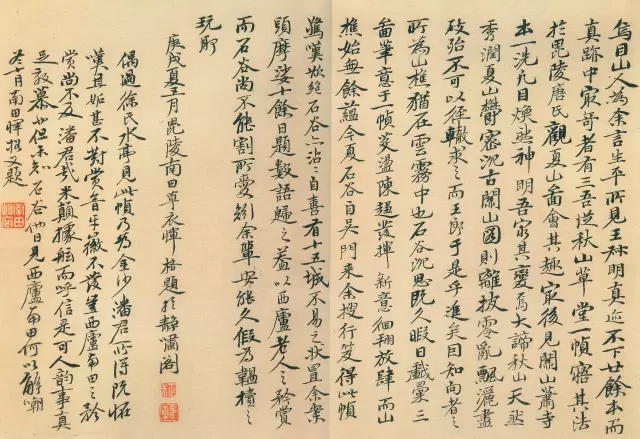 烏目山人為余言生平所見王叔明真迹不下廿餘本而
真跡中最奇者有三吾從秋山草堂一幀悟其法
於毘陵唐氏觀夏山圖會其趣最後見關山蕭寺
本一洗凡目煥然神明吾窮其變焉大諦秋山天然
秀潤夏山鬱密沉古關山圖則離披零亂飄灑盡
致殆不可以徑轍求之而王郎于是乎進矣因知向者之
所為山樵猶在雲霧中也石谷沉思既久暇日戲彙三
圖筆意于一幀滌盪陳趨發揮新意徊翔放肆而山
樵始無餘蘊今夏石谷自吳門來余搜行笈得此幀
驚嘆欲絕石谷亦沾沾自喜有十五城不易之狀置余案
頭摩挲十餘日題數語歸之蓋以西廬老人之矜賞
而石谷尚不能割所愛矧余輩安能久假為韞櫝之
玩耶
庚戌夏五月毘陵南田草衣惲格題於靜嘯閣
偶過徐氏水亭見此幀乃為金沙潘君所得既怪
嘆且妬甚不對賞音牙徽不發豈西廬南田之矜
賞尚不及潘君哉米顛據舷而呼信是可人韻事真
足效慕也但未知石谷他日見西廬南田何以解嘲
冬十月南田惲格又題